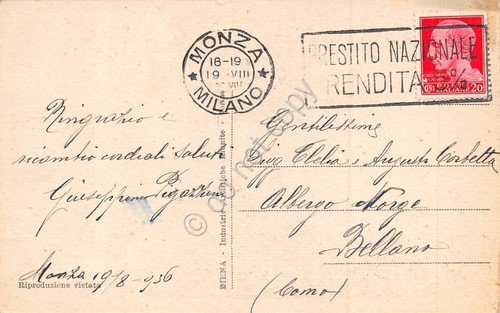 MONZA
18-19
19 VIII
MILANO
PRESTITO NAZIONALE
RENDITA %
20
Ringrazio e
ricambio cordiali saluti
Giuseppina
Monza 19/8-936
Riproduzione vietata
Industrie Grafiche
do not copy
Gentilissime
Sigg Clelia e Augusta Corbetta
Albergo Norge
Bellano
(Como)